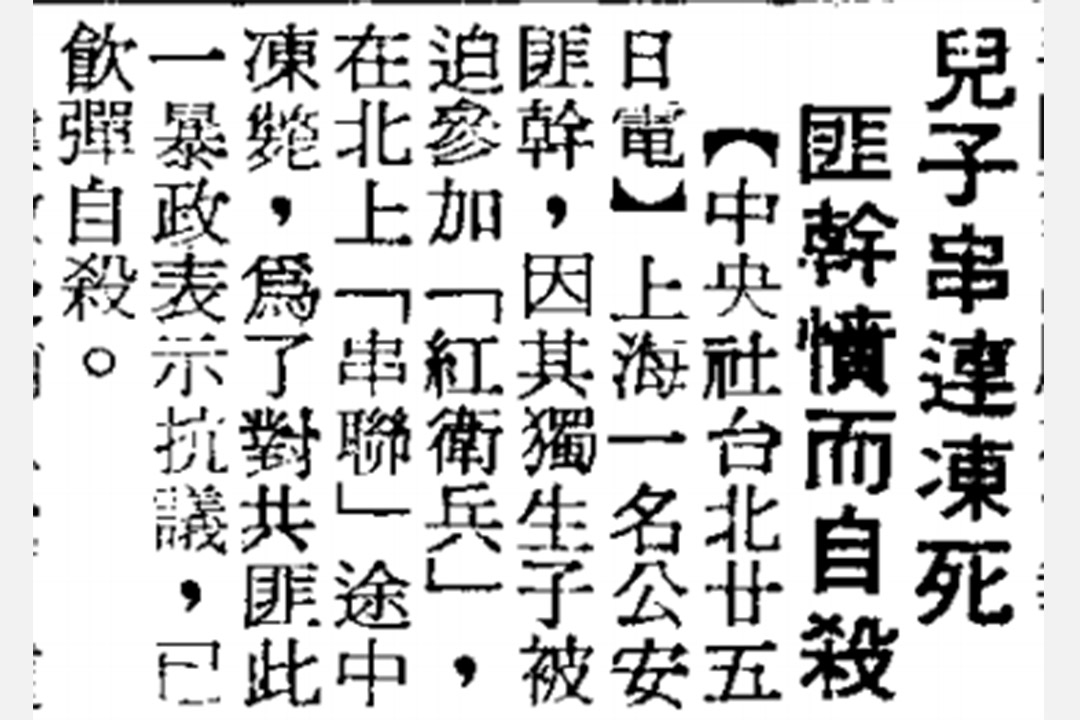 兒子串連凍死
匪幹憤而自殺
【中央社台北廿五
日電】上海一名公安
匪幹，因其獨生子被
迫參加「紅衛兵」，
在北上「串聯」途中
凍斃，為了對共匪此
一暴政表示抗議，已
飲彈自殺。